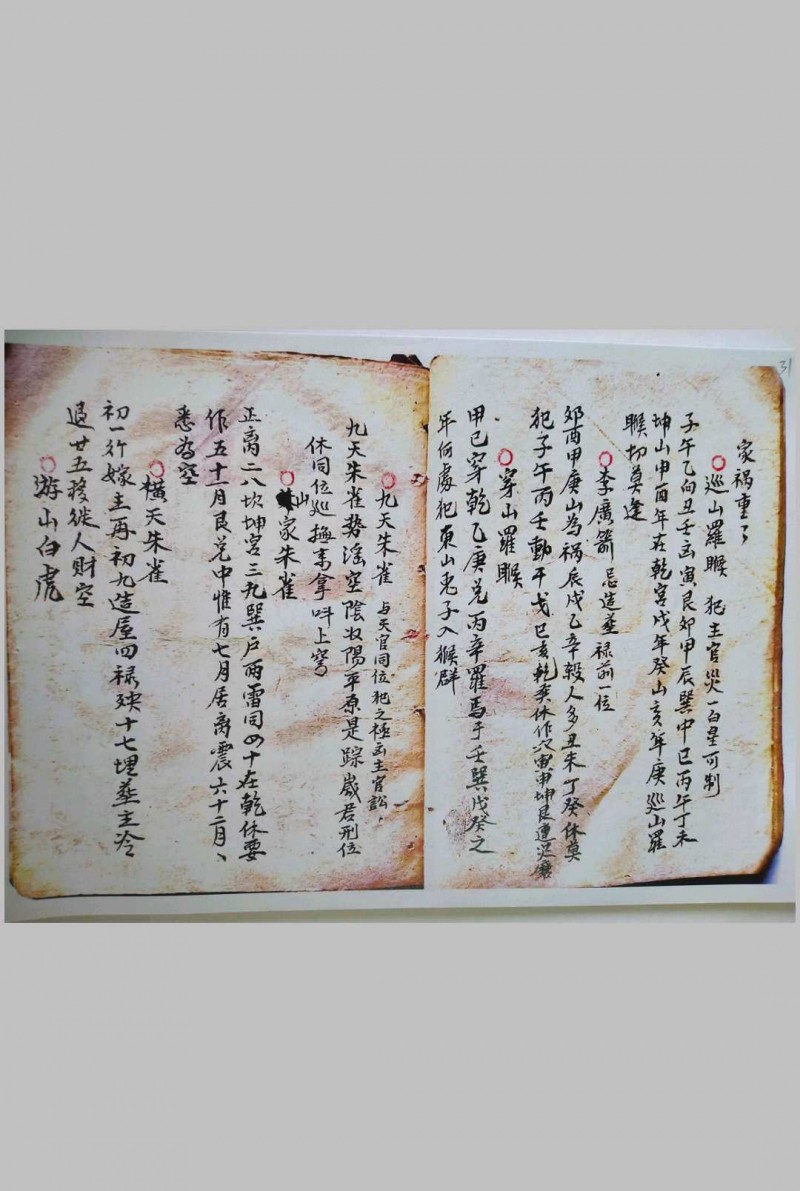 31
家祸重了
巡山羅睺 犯主官災一白星可制
子午乙向丑壬函寅艮夘甲辰巽中巳丙午丁未
坤山申酉年在乾宮戌年癸山亥年庚巡山羅
睺切莫逢
李廣箭 忌造𦵏 禄前一位
夘酉甲庚山為禍辰戌乙辛殺人多丑未丁癸休莫
犯子午丙壬動干戈巳亥乾巽休作穴寅申坤艮
穿山羅睺
甲巳穿乾乙庚兑丙辛羅馬于壬巽戊癸之
年何處犯東山兎子入猴群
九天朱雀 与天官同位犯之極凶主官訟
九天朱雀势滛空陰収陽平原是踪歲君刑位
休同位巡拿呌上穹
山家朱雀
正离二八坎坤宮三九巽户两雷同四十在乾休要
作五十一月艮兑中惟有七月居离震六十二月
悉為空
橫天朱雀
初一行嫁主再初九造屋回禄殃十七埋𦵏主冷
退廿五移徙人財空
游山白虎